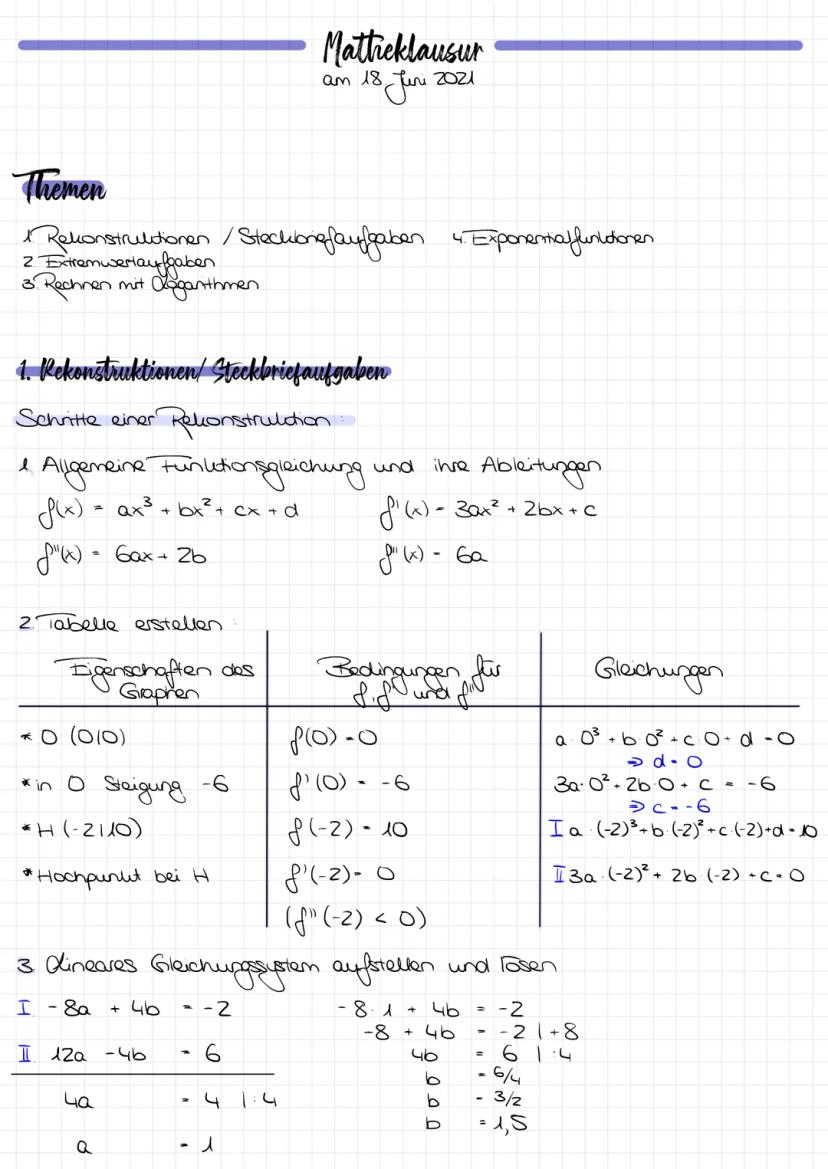 Matheklausur
am 18. Juni 2021
Themen
1. Rekonstruktionen / Steckbriefaufgaben 4. Exponentialfunktionen
2. Extremwertaufgaben
3. Rechnen mit Logarithmen
1. Rekonstruktionen/ Steckbriefaufgaben
Schritte einer Rekonstruktion:
1. Allgemeine Funktionsgleichung und ihre Ableitungen
f(x) = ax³ + bx² + cx + d f'(x) = 3ax² + 2bx + c
f''(x) = 6ax + 2b f'''(x) = 6a
2. Tabelle erstellen:
Eigenschaften des Graphen Bedingungen für f, f' und f'' Gleichungen
* O (0|0) f(0) = 0 a · 0³ + b · 0² + c · 0 + d = 0
⇒ d = 0
* in O Steigung -6 f'(0) = -6 3a · 0² + 2b · 0 + c = -6
⇒ c = -6
* H (-2|10) f(-2) = 10 I a · (-2)³ + b · (-2)² + c · (-2) + d = 10
* Hochpunkt bei H f'(-2) = 0 II 3a · (-2)² + 2b · (-2) + c = 0
(f''(-2) < 0)
3. Lineares Gleichungssystem aufstellen und lösen
I. -8a + 4b = -2 -8 · 1 + 4b = -2
-8 + 4b = -2 | +8
II. 12a - 4b = 6 4b = 6 | :4
b = 6/4
4a = 4 | :4 b = 3/2
b = 1,5
a = 1